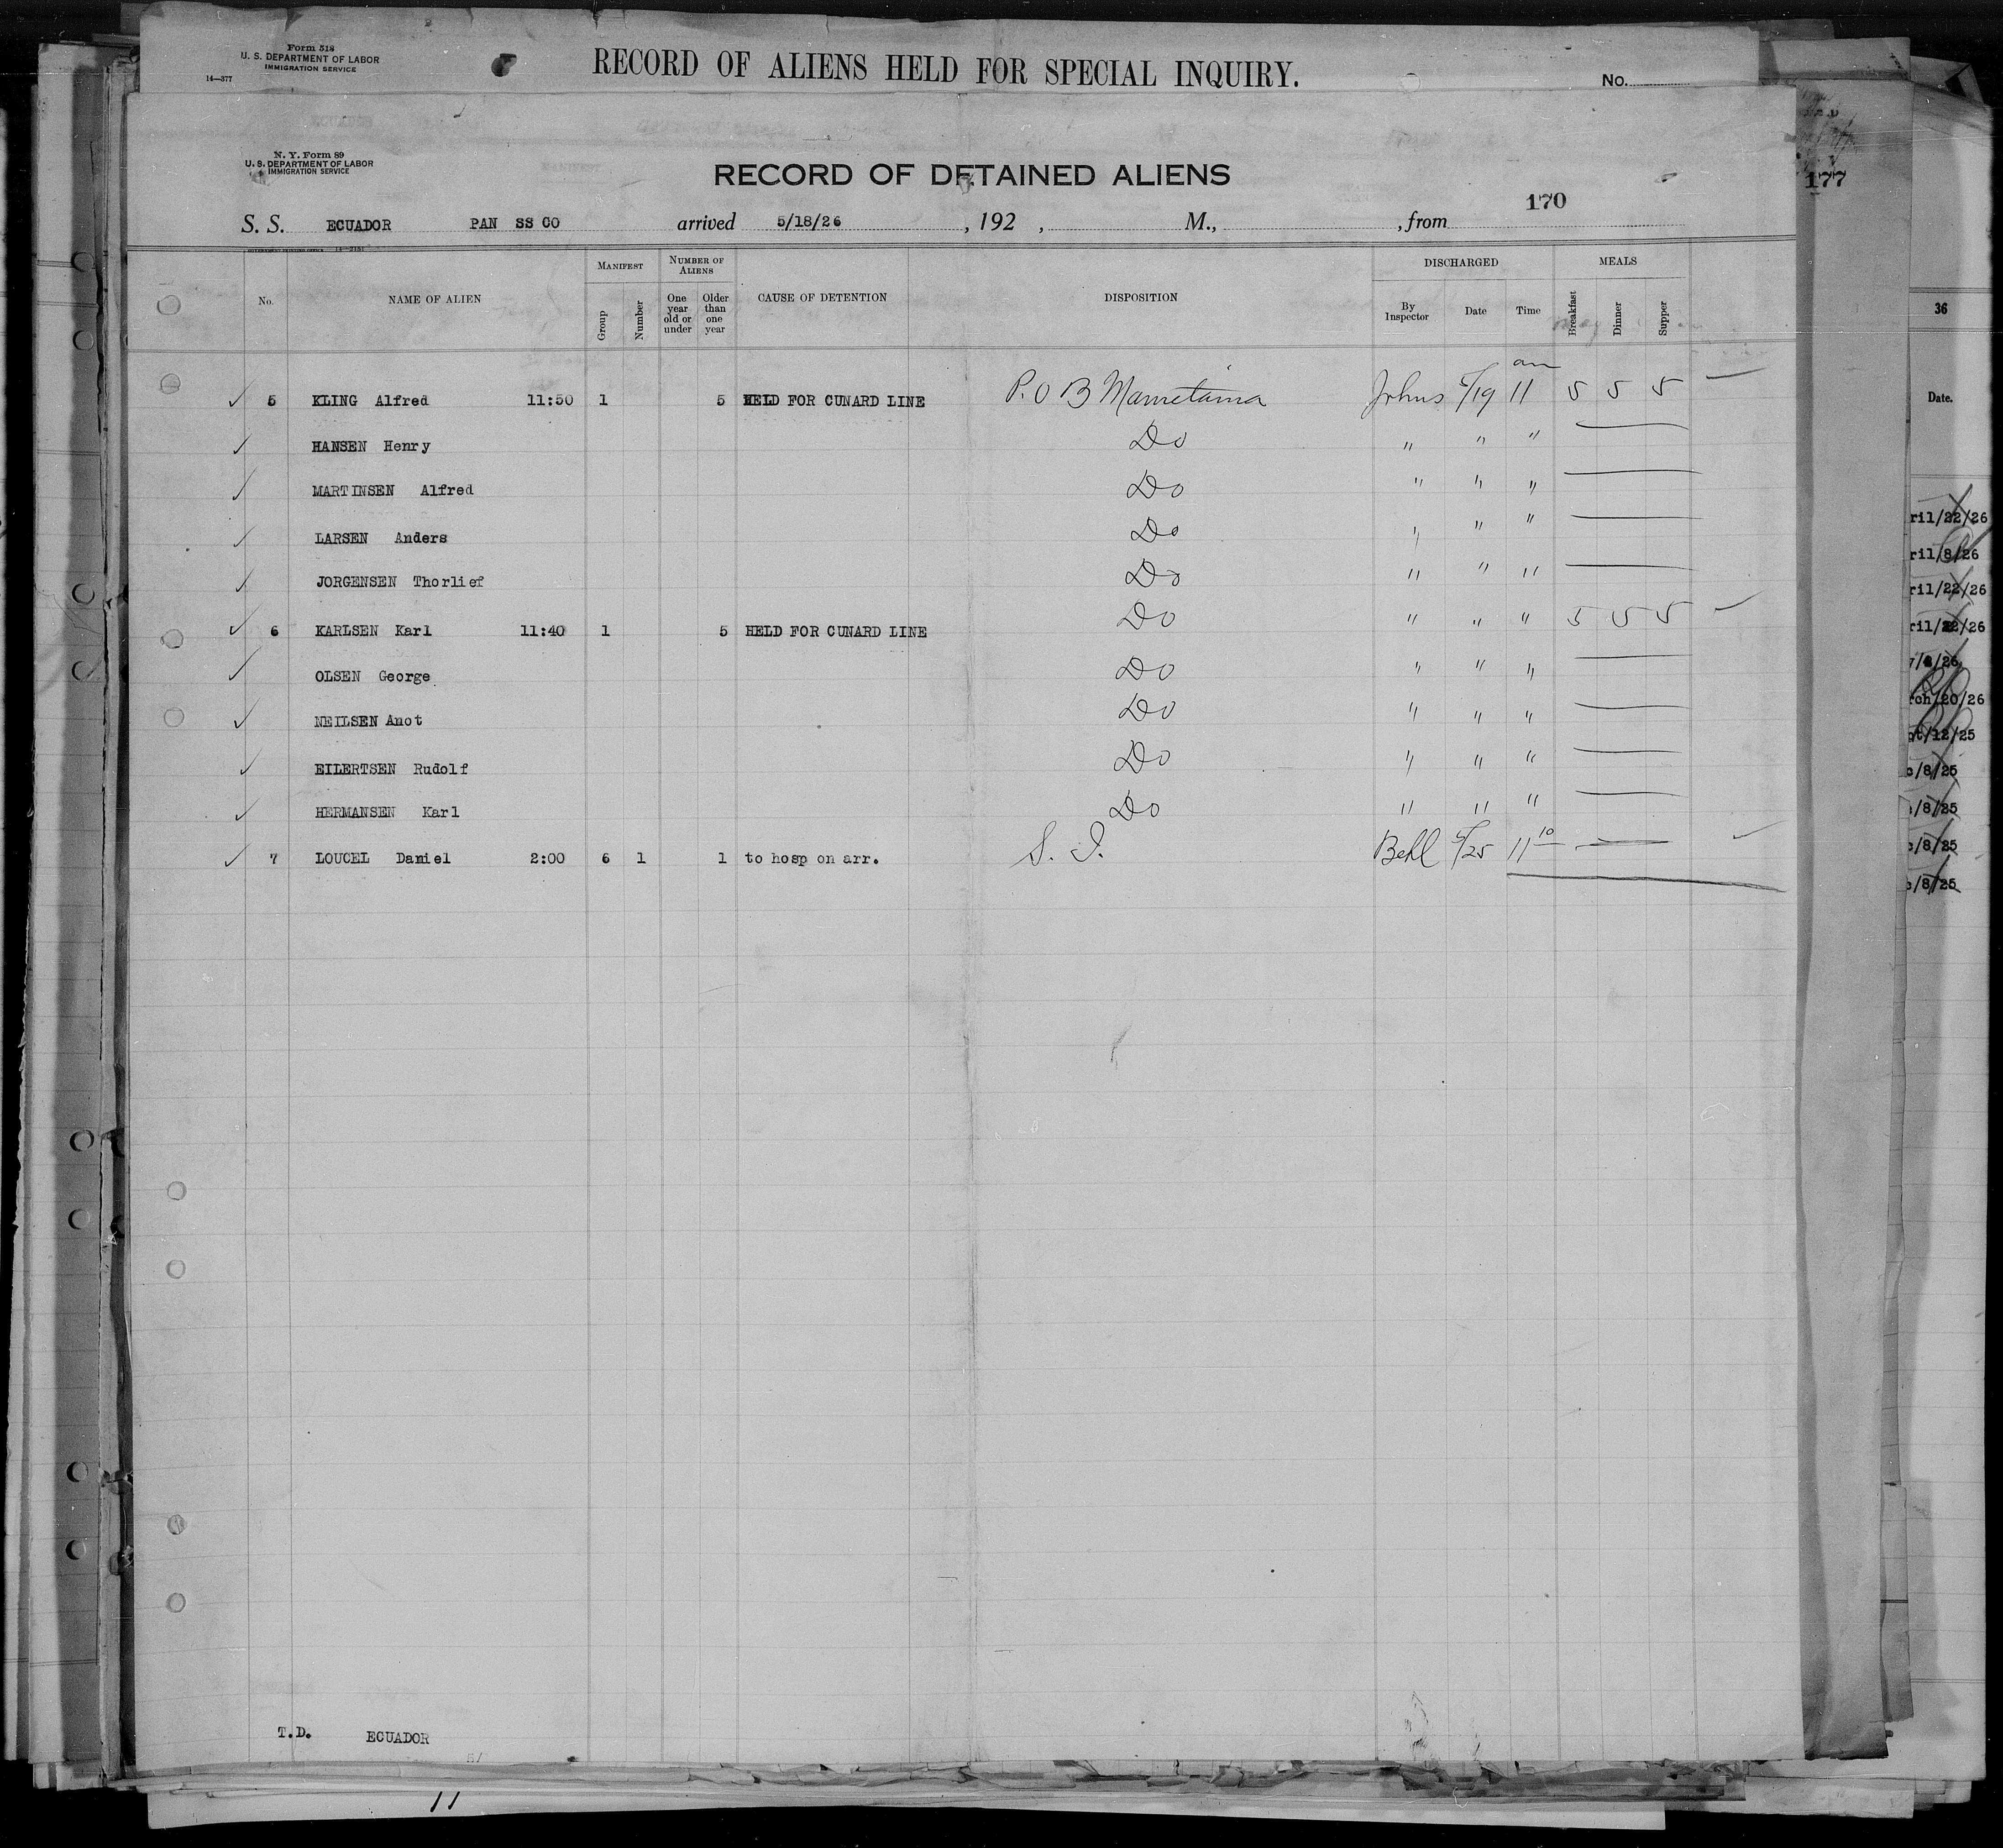 Form 518
U. S. DEPARTMENT OF LABOR
IMMIGRATION SERVICE
14—377
RECORD OF ALIENS HELD FOR SPECIAL INQUIRY.
No.
N. Y. Form 89
U. S. DEPARTMENT OF LABOR
IMMIGRATION SERVICE
RECORD OF DETAINED ALIENS
177
170
S. S. ECUADOR PAN SS CO arrived 5/18/26, 192 , M., , from
GOVERNMENT PRINTING OFFICE
No. NAME OF ALIEN MANIFEST Group Number NUMBER OF ALIENS One year old or under Older than one year CAUSE OF DETENTION DISPOSITION DISCHARGED By Inspector Date Time MEALS Breakfast Dinner Supper
36
Date.
5 KLING Alfred 11:50 1 5 HELD FOR CUNARD LINE P. O B Mauretania Johns 5/19 11 am 5 5 5
HANSEN Henry Do " " "
MARTINSEN Alfred Do " " "
LARSEN Anders Do " " "
JORGENSEN Thorlief Do " " "
6 KARLSEN Karl 11:40 1 5 HELD FOR CUNARD LINE Do " " " 5 5 5
OLSEN George Do " " "
NEILSEN Anot Do " " "
EILERTSEN Rudolf Do " " "
HERMANSEN Karl Do " " "
7 LOUCEL Daniel 2:00 6 1 1 to hosp on arr. S. I. Behl 5/25 11 10
ril/22/26
ril/8/26
ril/22/26
ril/22/26
rch/20/26
/12/25
/8/25
/8/25
/8/25
/8/25
T.D. ECUADOR
11